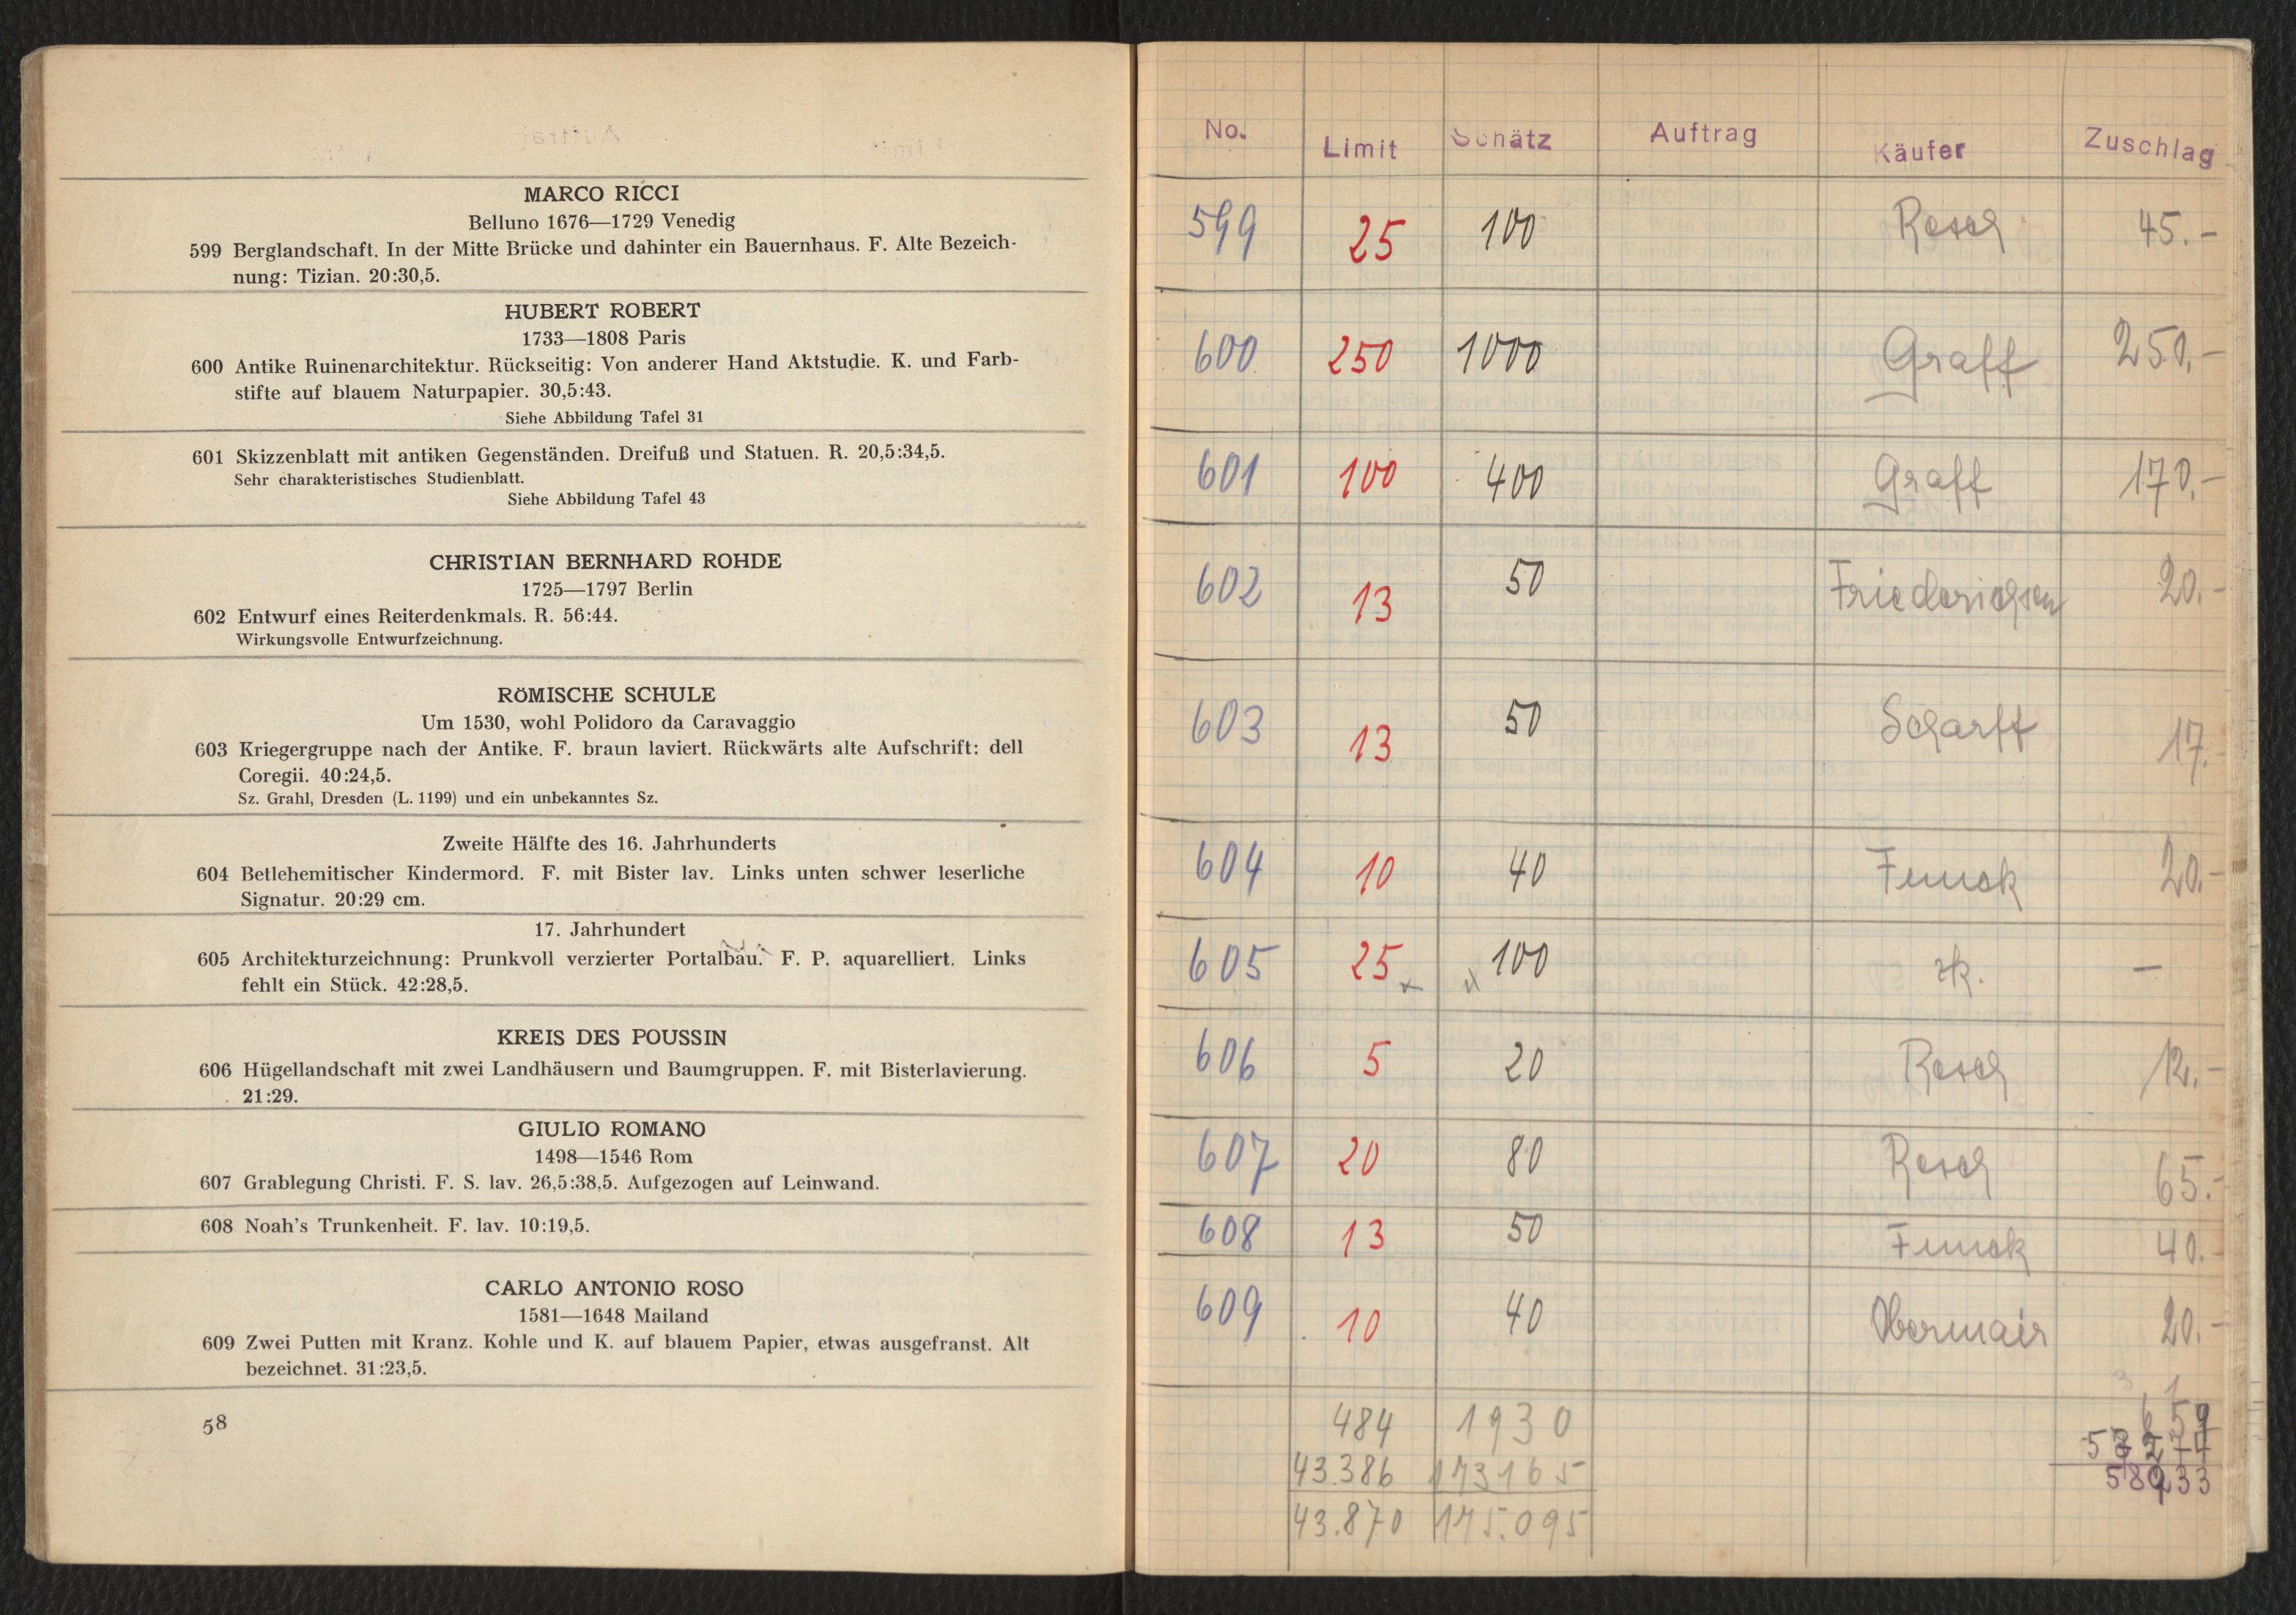 MARCO RICCI
Belluno 1676—1729 Venedig
599 Berglandschaft. In der Mitte Brücke und dahinter ein Bauernhaus. F. Alte Bezeich-
nung: Tizian. 20:30,5.
HUBERT ROBERT
1733—1808 Paris
600 Antike Ruinenarchitektur. Rückseitig: Von anderer Hand Aktstudie. K. und Farb-
stifte auf blauem Naturpapier. 30,5:43.
Siehe Abbildung Tafel 31
601 Skizzenblatt mit antiken Gegenständen. Dreifuß und Statuen. R. 20,5:34,5.
Sehr charakteristisches Studienblatt.
Siehe Abbildung Tafel 43
CHRISTIAN BERNHARD ROHDE
1725—1797 Berlin
602 Entwurf eines Reiterdenkmals. R. 56:44.
Wirkungsvolle Entwurfzeichnung.
RÖMISCHE SCHULE
Um 1530, wohl Polidoro da Caravaggio
603 Kriegergruppe nach der Antike. F. braun laviert. Rückwärts alte Aufschrift: dell
Coregii. 40:24,5.
Sz. Grahl, Dresden (L. 1199) und ein unbekanntes Sz.
Zweite Hälfte des 16. Jahrhunderts
604 Betlehemitischer Kindermord. F. mit Bister lav. Links unten schwer leserliche
Signatur. 20:29 cm.
17. Jahrhundert
605 Architekturzeichnung: Prunkvoll verzierter Portalbau. F. P. aquarelliert. Links
fehlt ein Stück. 42:28,5.
KREIS DES POUSSIN
606 Hügellandschaft mit zwei Landhäusern und Baumgruppen. F. mit Bisterlavierung.
21:29.
GIULIO ROMANO
1498—1546 Rom
607 Grablegung Christi. F. S. lav. 26,5:38,5. Aufgezogen auf Leinwand.
608 Noah's Trunkenheit. F. lav. 10:19,5.
CARLO ANTONIO ROSO
1581—1648 Mailand
609 Zwei Putten mit Kranz. Kohle und K. auf blauem Papier, etwas ausgefranst. Alt
bezeichnet. 31:23,5.
58
No. Limit Schätz Auftrag Käufer Zuschlag
599 25 100 Resch 45.-
600 250 1000 Graff 250.-
601 100 400 Graff 170.-
602 13 50 Friederichsen 20.-
603 13 50 Scharff 17.-
604 10 40 Funck 20.-
605 25 x x 100 rk. —
606 5 20 Resch 12.-
607 20 80 Resch 65.-
608 13 50 Funck 40.-
609 10 40 Obermair 20.-
484 1930 659
43.386 173165
43.870 175.095